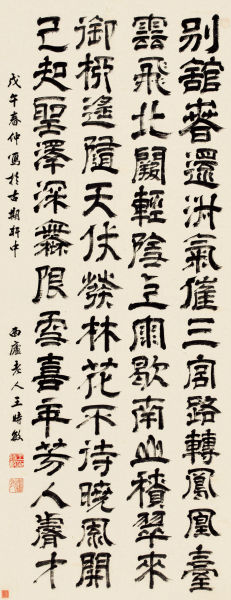 別舘春還淑氣催三宮路轉鳳凰臺
雲飛北闕輕陰雨歇南山積翠來
御柳遙隨天仗發林花不待曉風開
已知聖澤深無限喜年芳入睿才
戊午春仲寫於古期軒中
西廬老人王時敏